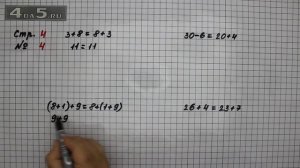 4DO5.RU
Стр. 4 3+8=8+3 30-6=20+4
№ 4 11=11
(8+1)+9=8+(1+9) 26+4=23+7
9+9